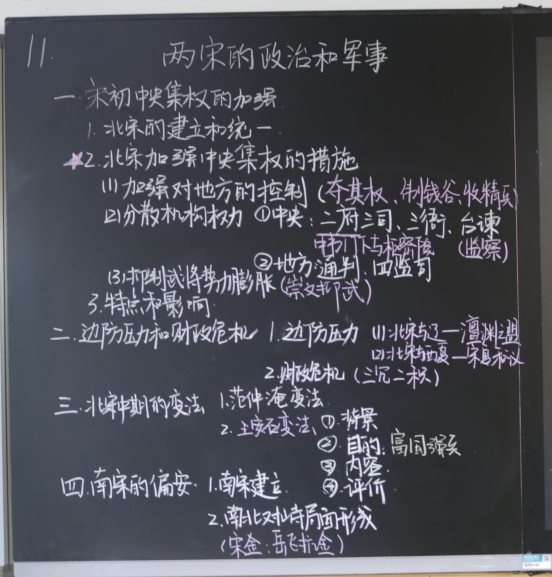 11. 两宋的政治和军事
一.宋初中央集权的加强
1.北宋的建立和统一
*2.北宋加强中央集权的措施
(1)加强对地方的控制(夺其权、制钱谷、收精兵)
(2)分散机构权力 ①中央:二府三司、三衙、台谏
中书门下与枢密院 (监察)
②地方:通判、四监司
(3)抑制武将势力膨胀(崇文抑武)
3.特点和影响
二.边防压力和财政危机 1.边防压力 (1)北宋与辽—澶渊之盟
(2)北宋与西夏—宋夏和议
2.财政危机(三冗二积)
三.北宋中期的变法 1.范仲淹变法
2.王安石变法 ①背景
②目的:富国强兵
③内容
④评价
四.南宋的偏安 1.南宋建立
2.南北对峙局面形成
(宋金:岳飞抗金)